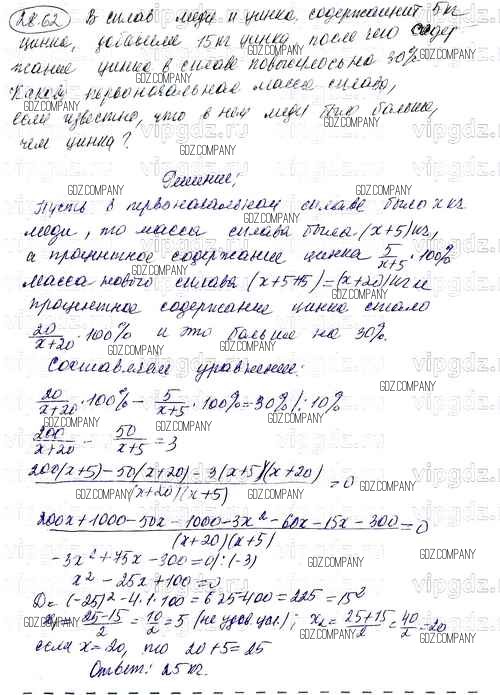 28.62 В сплав меди и цинка, содержащий 5 кг
цинка, добавили 15 кг цинка, после чего содер-
жание цинка в сплаве повысилось на 30%.
Какой первоначальная масса сплава,
если известно, что в нём меди было больше,
чем цинка?
Решение:
Пусть в первоначальном сплаве было x кг
меди, то масса сплава была (x+5) кг,
а процентное содержание цинка 5/(x+5) · 100%
Масса нового сплава (x+5+15)=(x+20) кг и
процентное содержание цинка стало
20/(x+20) · 100% и это больше на 30%.
Составляем уравнение:
20/(x+20) · 100% - 5/(x+5) · 100% = 30% | : 10%
200/(x+20) - 50/(x+5) = 3
(200(x+5)-50(x+20)-3(x+5)(x+20))/((x+20)(x+5)) = 0
(200x+1000-50x-1000-3x²-60x-15x-300)/((x+20)(x+5)) = 0
-3x²+75x-300=0 | : (-3)
x²-25x+100=0
D=(-25)²-4·1·100=625-400=225=15²
x₁=(25-15)/2=10/2=5 (не удов. усл.); x₂=(25+15)/2=40/2=20
если x=20, то 20+5=25
Ответ: 25 кг.